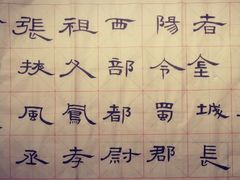 者金城長
陽令蜀郡
西部都尉
祖父鳳孝
張挾風丞